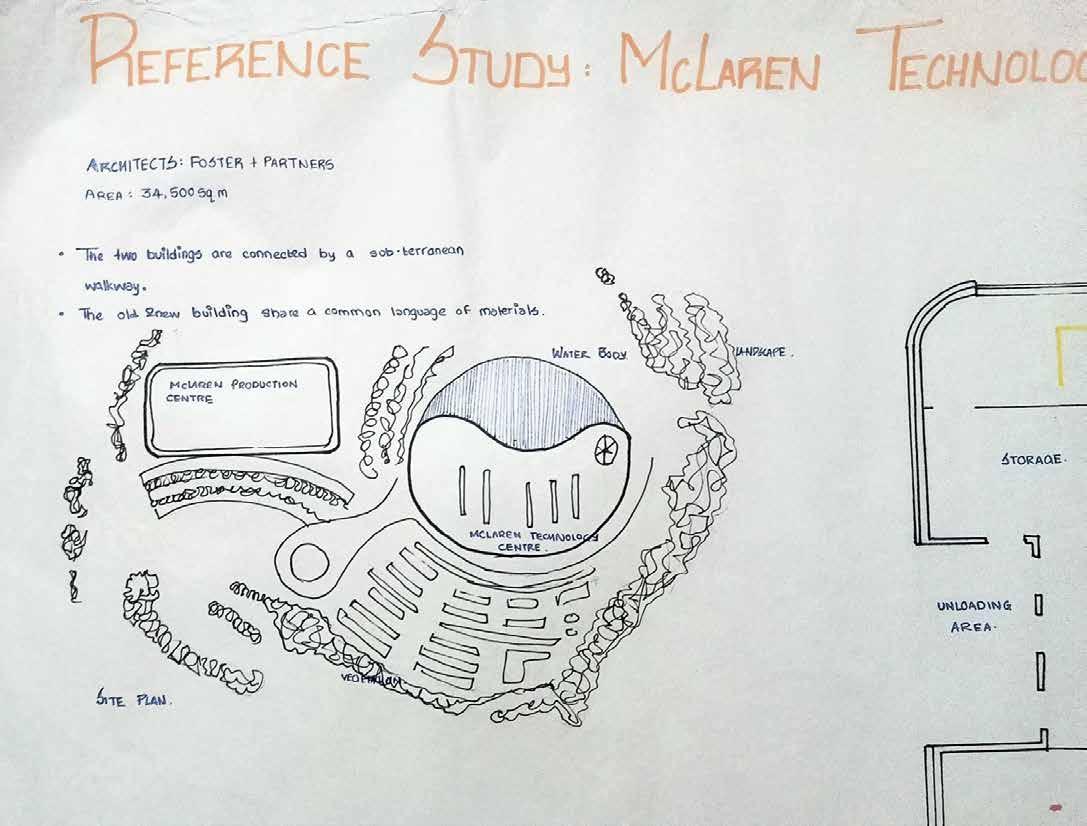 REFERENCE STUDY: McLAREN TECHNOLOG
ARCHITECTS: FOSTER + PARTNERS
AREA: 34,500 Sq m
• The two buildings are connected by a sub-terranean
walkway.
• The old & new building share a common language of materials.
WATER BODY
LANDSCAPE.
McLAREN PRODUCTION
CENTRE
McLAREN TECHNOLOGY
CENTRE.
STORAGE.
UNLOADING
AREA.
VEGETATION.
SITE PLAN.